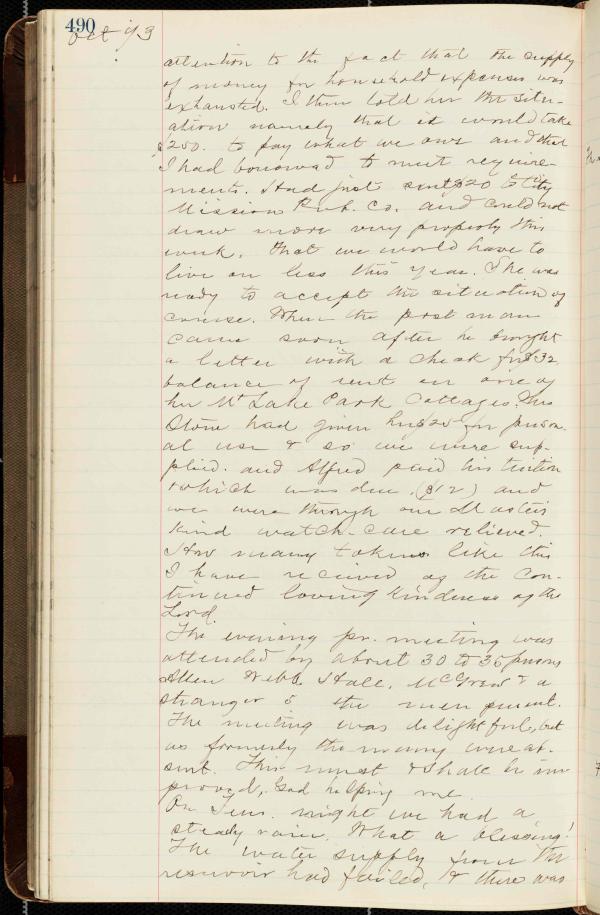 490
Oct 93
attention to the fact that the supply
of money for household expenses was
exhausted. I then told her the situ-
ation namely that it would take
$250. to pay what we owe and that
I had borrowed to meet require-
ments. Had just sent $20 to City
Missions Pub. Co. and could not
draw more very properly this
week, that we would have to
live on less this year. She was
ready to accept the situation of
course. When the post man
came soon after he brought
a letter with a check for $32
balance of rent on one of
her Mt Lake Park Cottages. Mrs
Stone had given her $25 for person-
al use & so we were sup-
plied. and Alfred paid his tuition
which was due, ($12) and
we were through our Master's
kind watch-care relieved.
How many tokens like this
I have received of the con-
tinued loving kindness of the
Lord.
The evening pr. meeting was
attended by about 30 to 35 persons
Allen Hall, McGrew & a
stranger 5 the men present.
The meeting was delightful, but
as formerly the many were ab-
sent. This must & shall be im
proved, God helping me.
On Tues. night we had a
steady rain. What a blessing!
The water supply from the
reservoir had failed, & there was